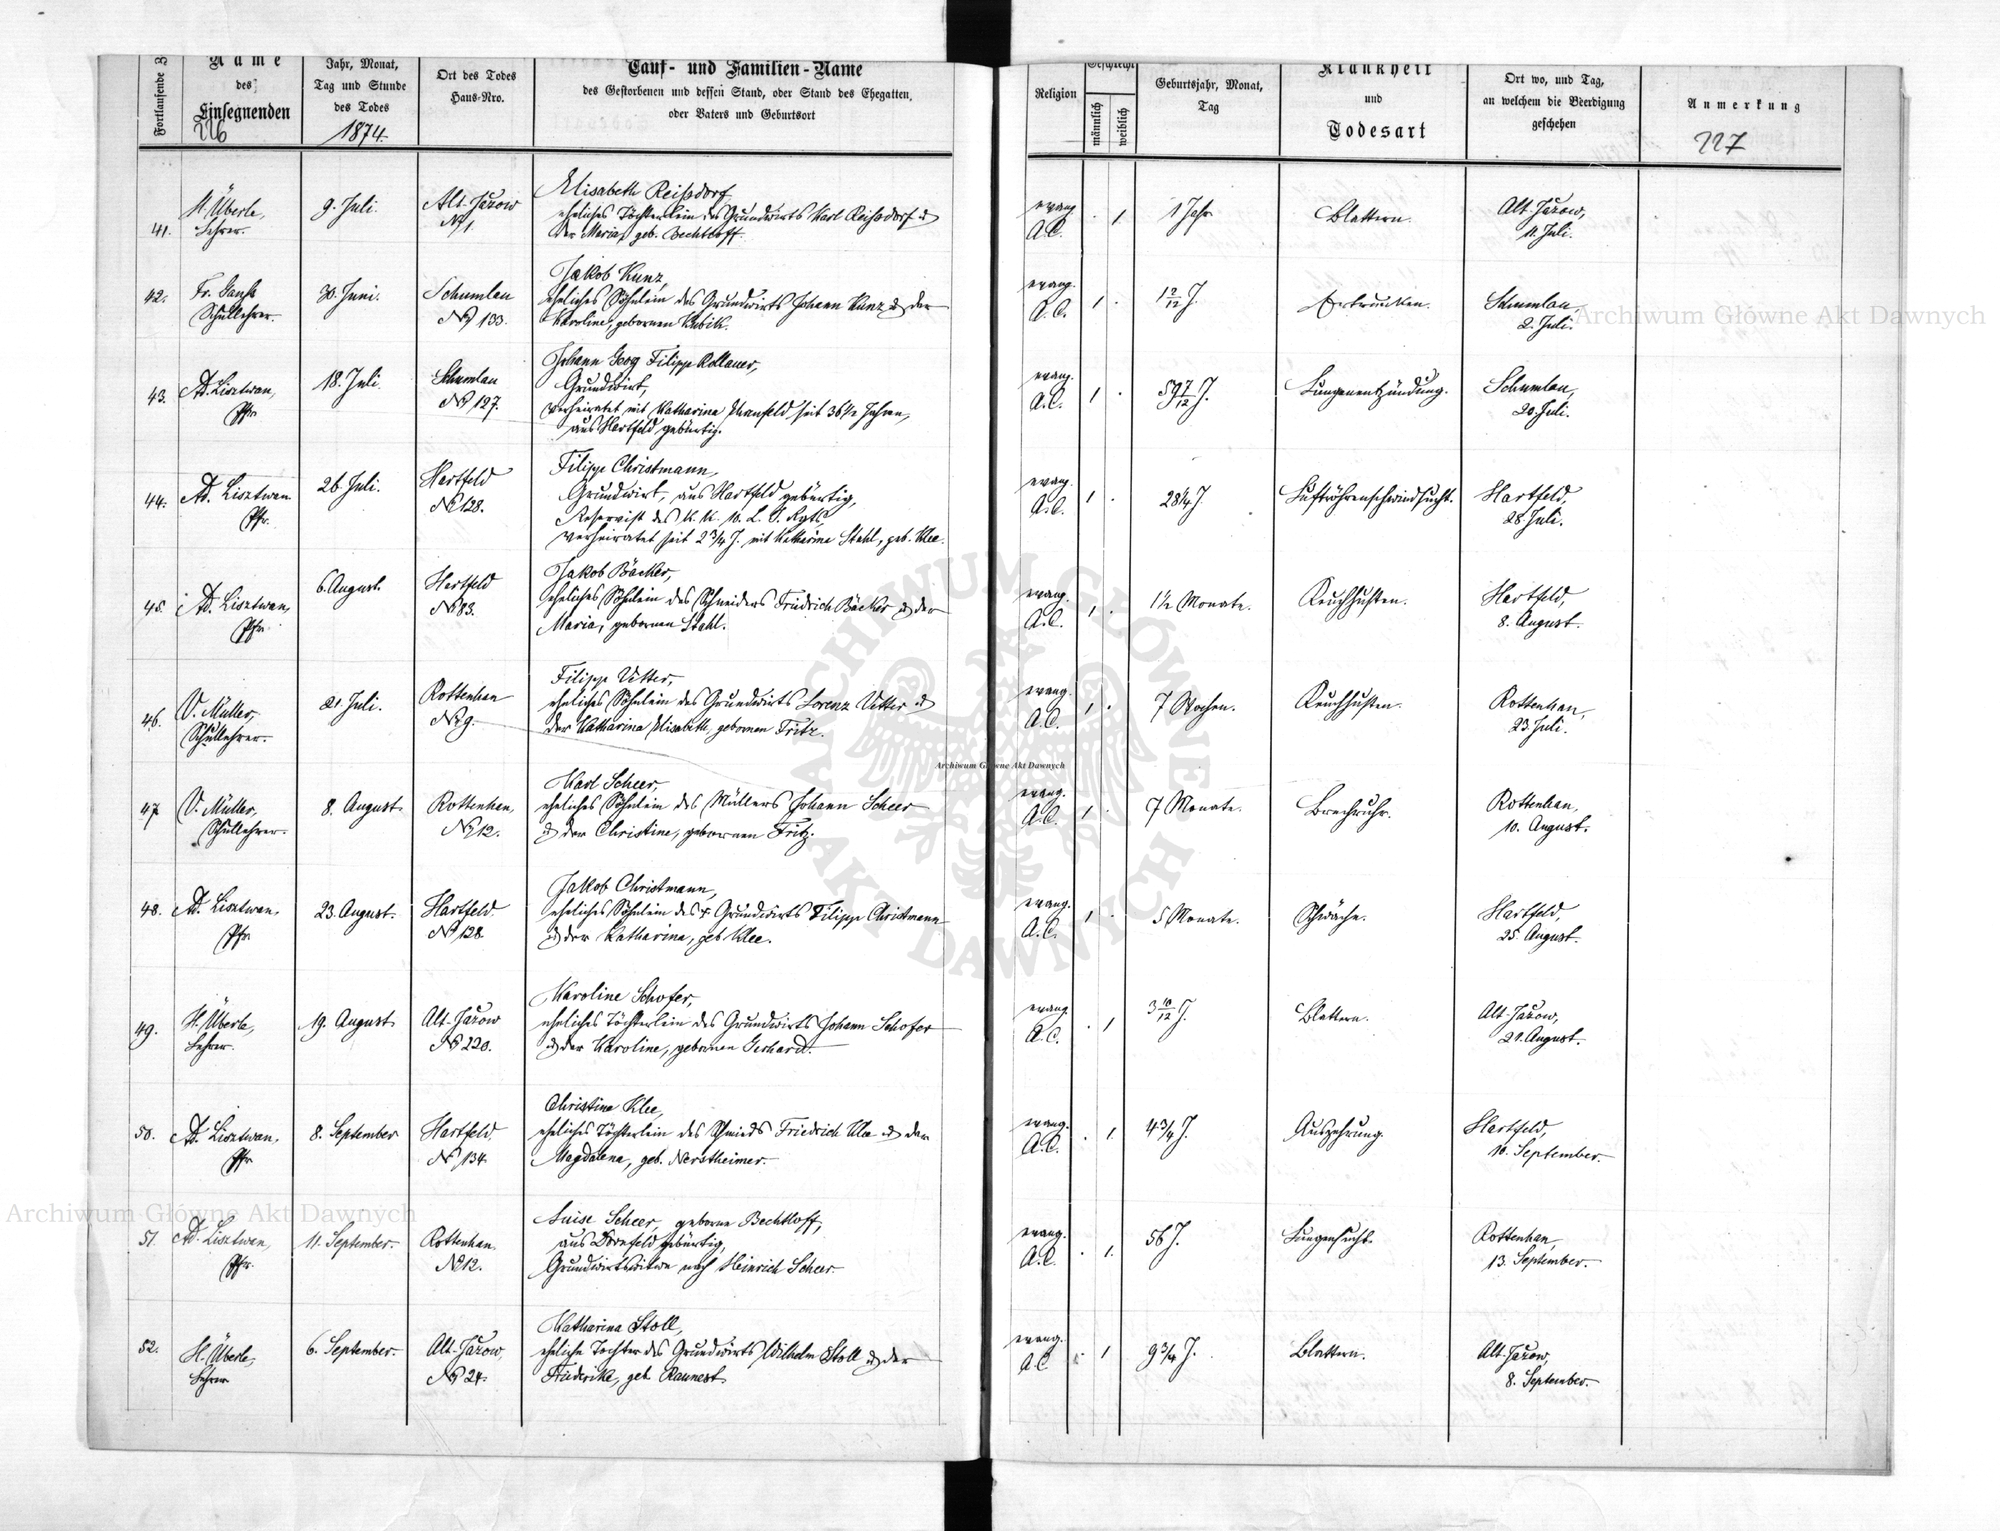 Fortlaufende Z
Name
des
Einsegnenden
226
Jahr, Monat,
Tag und Stunde
des Todes
1874.
Ort des Todes
Haus-Nro.
Tauf- und Familien-Name
des Gestorbenen und dessen Stand, oder Stand des Ehegatten,
oder Vaters und Geburtsort
Religion
Geschlecht
männlich
weiblich
Geburtsjahr, Monat,
Tag
Krankheit
und
Todesart
Ort wo, und Tag,
an welchem die Beerdigung
geschehen
Anmerkung
227
41.
H. Überle,
Lehrer.
9. Juli.
Alt-Jazow
No 1.
Elisabeth Reissdorf,
eheliches Töchterlein des Grundwirts Karl Reissdorf &
der Maria, geb. Bechtloff.
evang.
A.C.
1
1 Jahr
Blattern.
Alt-Jazow,
11. Juli.
42.
Fr. Ganss
Schullehrer.
30. Juni.
Schumlau
No 133.
Jakob Kunz,
eheliches Söhnlein des Grundwirts Johann Kunz & der
Karoline, gebornen Kubik.
evang.
A.C.
1
1 2/12 J.
Ertrunken.
Schumlau,
2. Juli.
43.
Ad. Lisztwan,
Pfr.
18. Juli.
Schumlau
No 127.
Johann Georg Filipp Rollauer,
Grundwirt,
verheiratet mit Katharina Manfeld seit 36 1/2 Jahren,
aus Hartfeld gebürtig.
evang.
A.C.
1
59 7/12 J.
Lungenentzündung.
Schumlau,
20. Juli.
44.
Ad. Lisztwan
Pfr.
26. Juli.
Hartfeld
No 128.
Filipp Christmann,
Grundwirt, aus Hartfeld gebürtig,
Reservist des K. K. 10. L. I. Rgts,
verheiratet seit 2 3/4 J. mit Katharina Stahl, geb. Klee.
evang.
A.C.
1
28 1/4 J
Luftröhrenschwindsucht.
Hartfeld,
28. Juli.
45.
Ad. Lisztwan,
Pfr.
6. August.
Hartfeld
No 83.
Jakob Bäcker,
eheliches Söhnlein des Schneiders Friedrich Bäcker & der
Maria, gebornen Stahl.
evang.
A.C.
1
1 1/2 Monate.
Keuchhusten.
Hartfeld,
8. August.
46.
V. Müller,
Schullehrer.
21. Juli.
Rottenhan
No 9.
Filipp Vetter,
eheliches Söhnlein des Grundwirts Lorenz Vetter &
der Katharina Elisabeth, gebornen Fritz.
evang.
A.C.
1
7 Wochen.
Keuchhusten.
Rottenhan,
23. Juli.
47.
V. Müller,
Schullehrer.
8. August
Rottenhan,
No 12.
Karl Scheer,
eheliches Söhnlein des Müllers Johann Scheer
& der Christine, gebornen Fritz.
evang.
A.C.
1
7 Monate.
Brechruhr.
Rottenhan,
10. August.
48.
Ad. Lisztwan,
Pfr.
23. August.
Hartfeld
No 128.
Jakob Christmann,
eheliches Söhnlein des † Grundwirts Filipp Christmann
& der Katharina, geb Klee.
evang.
A.C.
1
5 Monate.
Schwäche.
Hartfeld,
25. August.
49.
H. Überle,
Lehrer.
19. August
Alt-Jazow
No 220.
Karoline Schofer,
eheliches Töchterlein des Grundwirts Johann Schofer
& der Karoline, gebornen Gerhard.
evang.
A.C.
1
3 10/12 J.
Blattern.
Alt-Jazow,
21. August.
50.
Ad. Lisztwan,
Pfr
8. September
Hartfeld
No 134.
Christine Klee,
eheliches Töchterlein des Schmieds Friedrich Klee & der
Magdalena, geb. Nerstheimer.
evang.
A.C.
1.
4 3/4 J.
Auszehrung.
Hartfeld,
10. September.
51
Ad. Lisztwan,
Pfr.
11. September.
Rottenhan.
No 12.
Luise Scheer, geborne Bechtloff,
aus Dornfeld gebürtig,
Grundwirtswitwe nach Heinrich Scheer
evang.
A.C.
1.
56 J.
Lungensucht.
Rottenhan,
13. September.
52.
H. Überle,
Lehrer
6. September.
Alt-Jazow,
No 24.
Katharina Stoll,
eheliche Tochter des Grundwirts Wilhelm Stoll & der
Friederike, geb. Raunest.
evang.
A.C
1
9 3/4 J.
Blattern.
Alt-Jazow,
8. September.
Archiwum Główne Akt Dawnych
Archiwum Główne Akt Dawnych
Archiwum Główne Akt Dawnych
ARCHIWUM GŁÓWNE AKT DAWNYCH